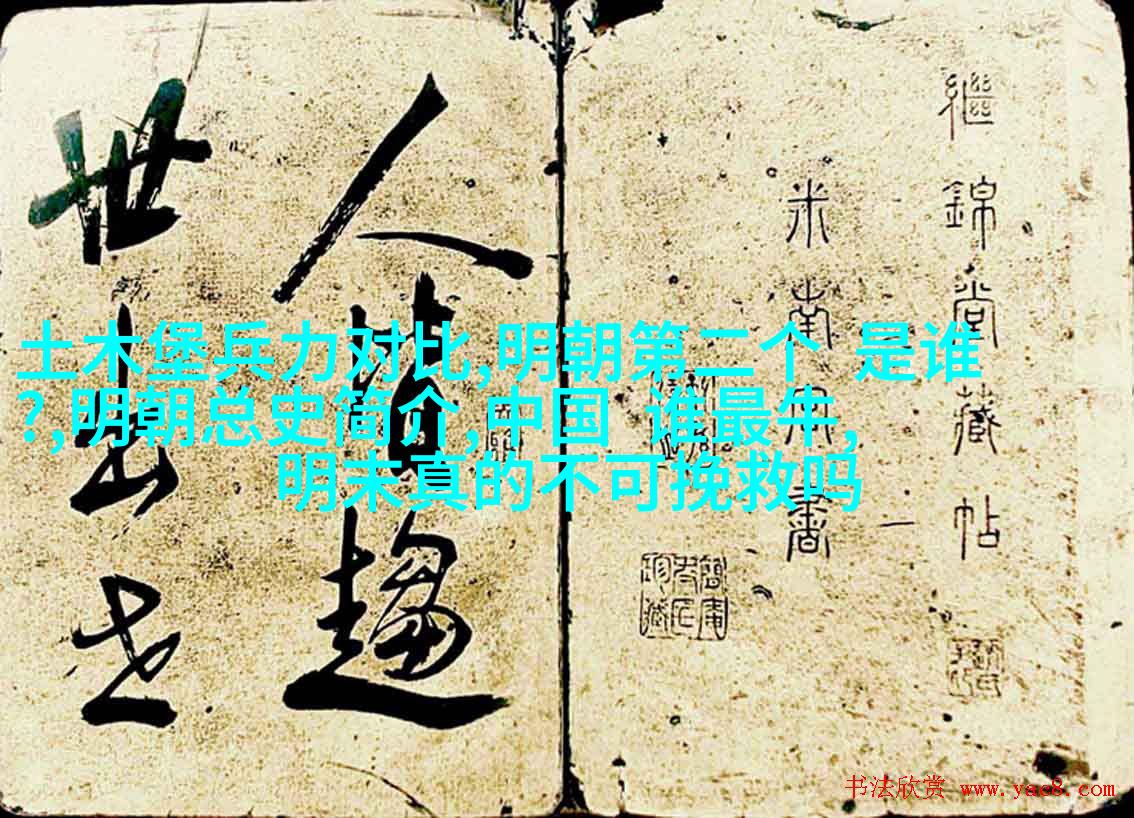 繼錦堂藏帖
米南宮書一
人皆趨
世出世
土木堡兵力对比,明朝第二个 是谁
?,明朝总史简介,中国 谁最牛,
明末真的不可挽救吗
书法欣赏 www.yac8.com